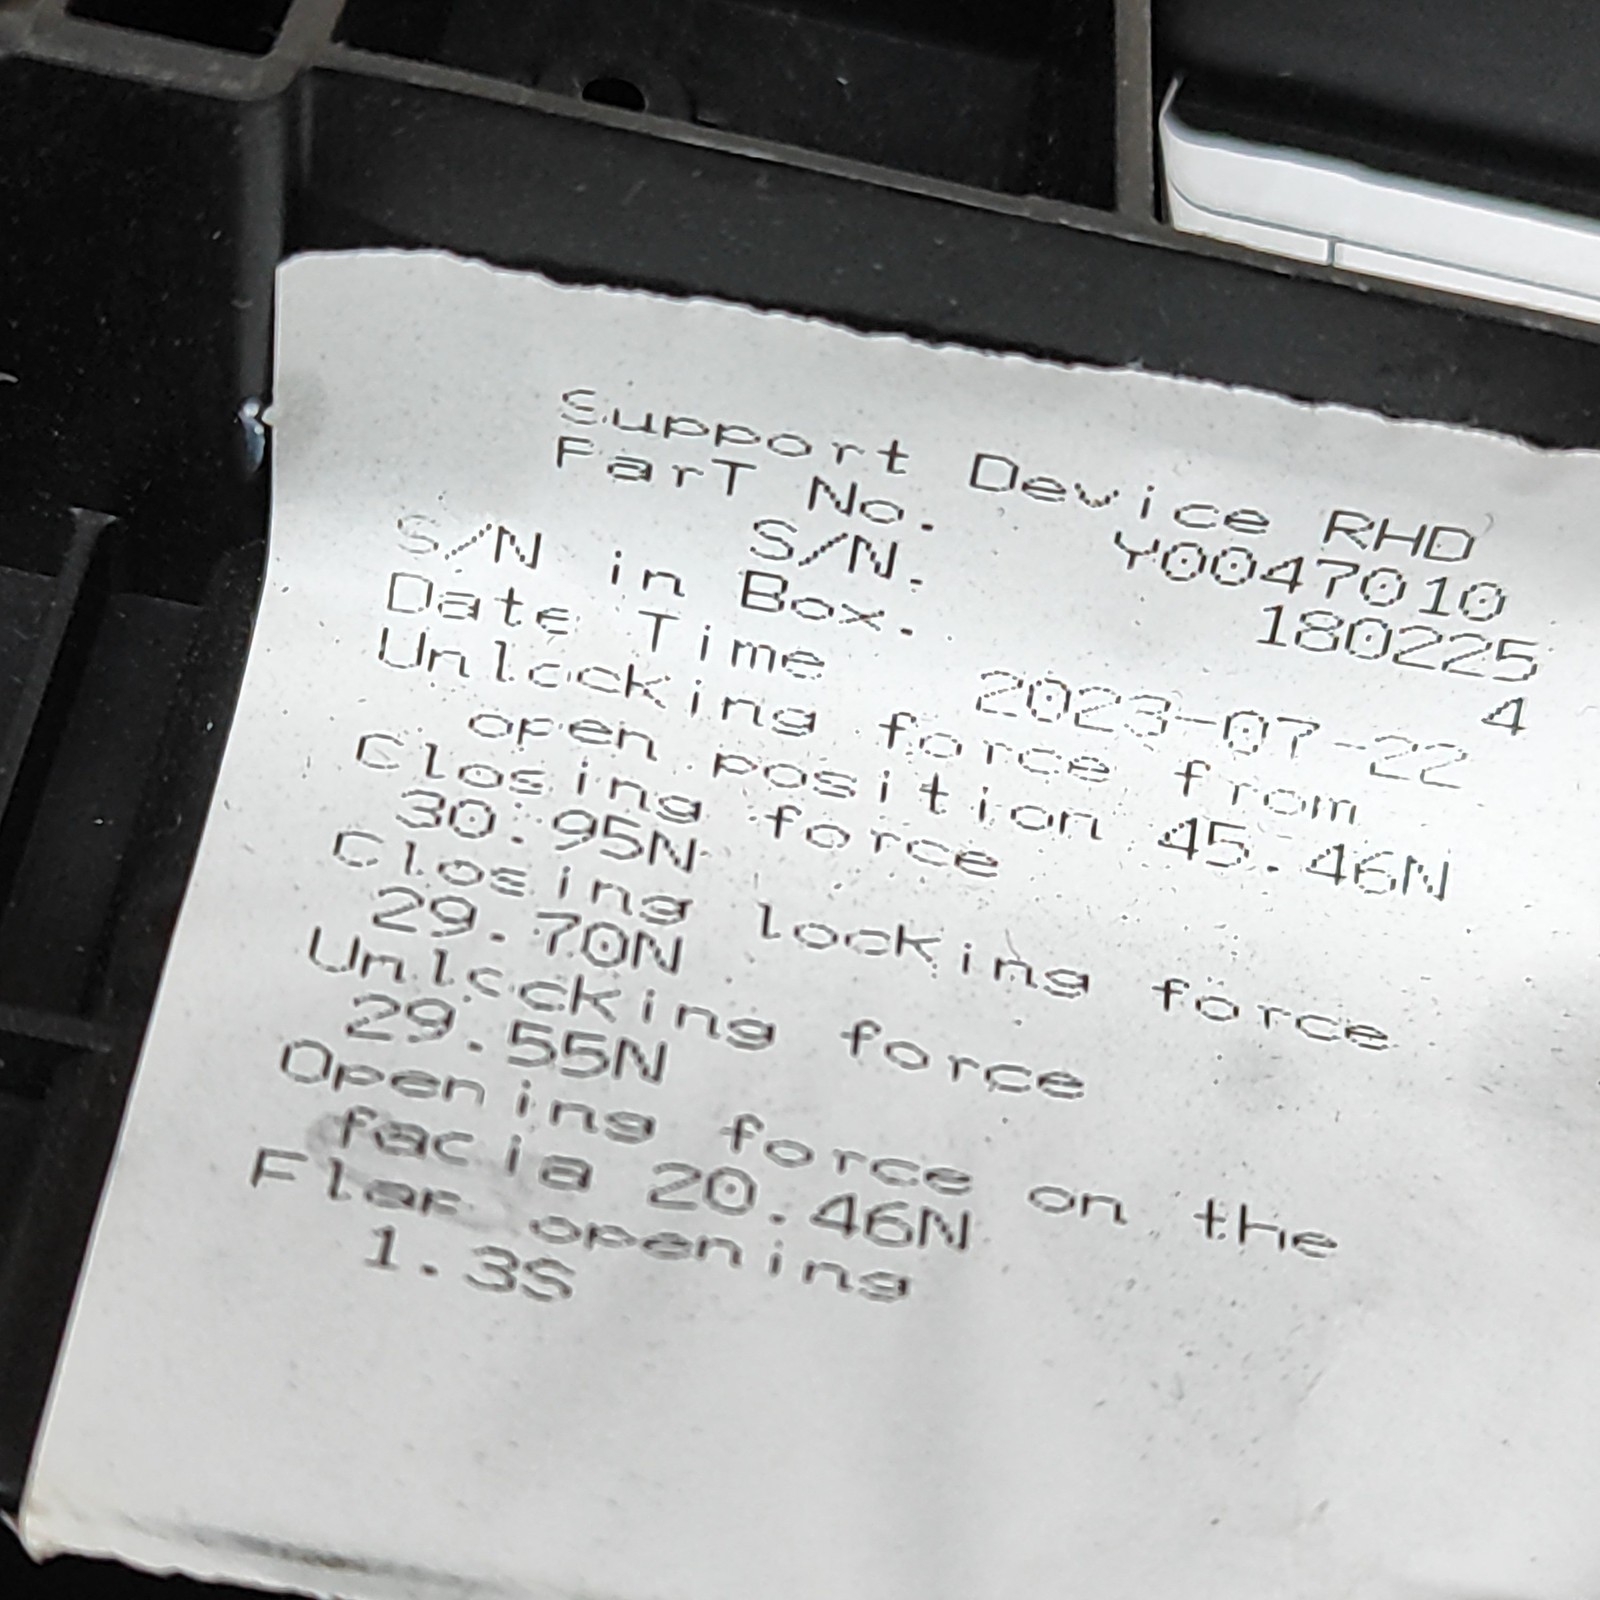 Support Device RHD
ParT No. Y0047010
S/N. 180225
S/N in Box. 4
Date Time 2023-07-22
Unlocking force from
open position 45.46N
Closing force
30.95N
Closing locking force
29.70N
Unlocking force
29.55N
Opening force on the
facia 20.46N
Flap opening
1.3S